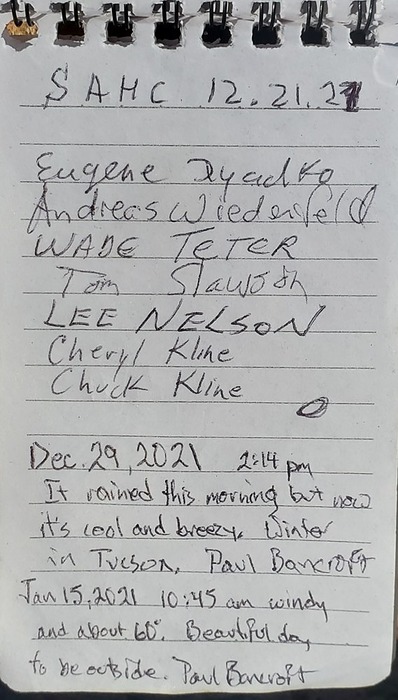 SAHC 12.21.21
Eugene Dyadko
Andreas Wiedenfeld
WADE TETER
Tom Slawson
LEE NELSON
Cheryl Kline
Chuck Kline
Dec. 29, 2021 2:14 pm
It rained this morning but now
it's cool and breezy. Winter
in Tucson. Paul Bancroft
Jan 15, 2021 10:45 am windy
and about 60°. Beautiful day
to be outside. Paul Bancroft